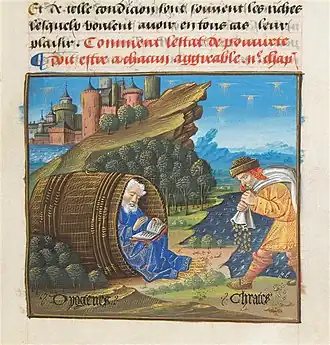 Et de telle condicion sont souvent les riches
lesquelz veulent avoir en tous cas leur
plaisir. Comment lestat de pouvrete
doit estre a chacun aggreable. chap
Dyogenes
Chrates